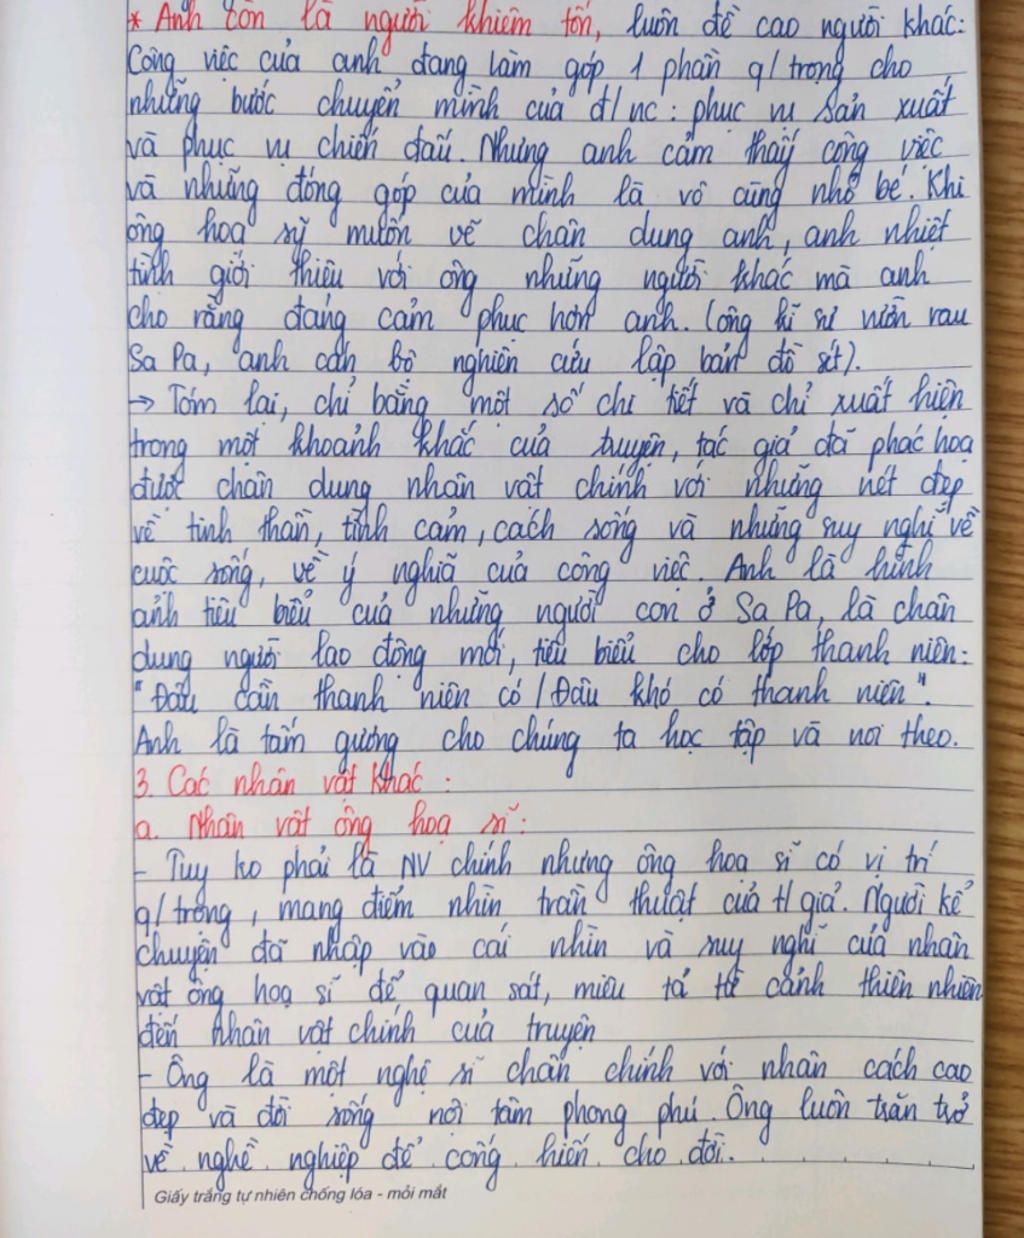 * Anh còn là người khiêm tốn, luôn đề cao người khác:
Công việc của anh đang làm góp 1 phần q/trọng cho
những bước chuyển mình của đ/nc: phục vụ sản xuất
và phục vụ chiến đấu. Nhưng anh cảm thấy công việc
và những đóng góp của mình là vô cùng nhỏ bé. Khi
ông hoạ sỹ muốn vẽ chân dung anh, anh nhiệt
tình giới thiệu với ông những người khác mà anh
cho rằng đáng cảm phục hơn anh. (ông kĩ sư vườn rau
Sa Pa, anh cán bộ nghiên cứu lập bản đồ sét).
→ Tóm lại, chỉ bằng một số chi tiết và chỉ xuất hiện
trong một khoảnh khắc của truyện, tác giả đã phác hoạ
được chân dung nhân vật chính với những nét đẹp
về tinh thần, tình cảm, cách sống và những suy nghĩ về
cuộc sống, về ý nghĩa của công việc. Anh là hình
ảnh tiêu biểu của những người con ở Sa Pa, là chân
dung người lao động mới, tiêu biểu cho lớp thanh niên:
"Đâu cần thanh niên có / Đâu khó có thanh niên".
Anh là tấm gương cho chúng ta học tập và noi theo.
3. Các nhân vật khác:
a. Nhân vật ông hoạ sĩ:
- Tuy ko phải là NV chính nhưng ông hoạ sĩ có vị trí
q/trọng, mang điểm nhìn trần thuật của t/giả. Người kể
chuyện đã nhập vào cái nhìn và suy nghĩ của nhân
vật ông hoạ sĩ để quan sát, miêu tả từ cảnh thiên nhiên
đến nhân vật chính của truyện
- Ông là một nghệ sĩ chân chính với nhân cách cao
đẹp và đời sống nội tâm phong phú. Ông luôn trăn trở
về nghề nghiệp để cống hiến cho đời.
Giấy trắng tự nhiên chống lóa - mỏi mắt